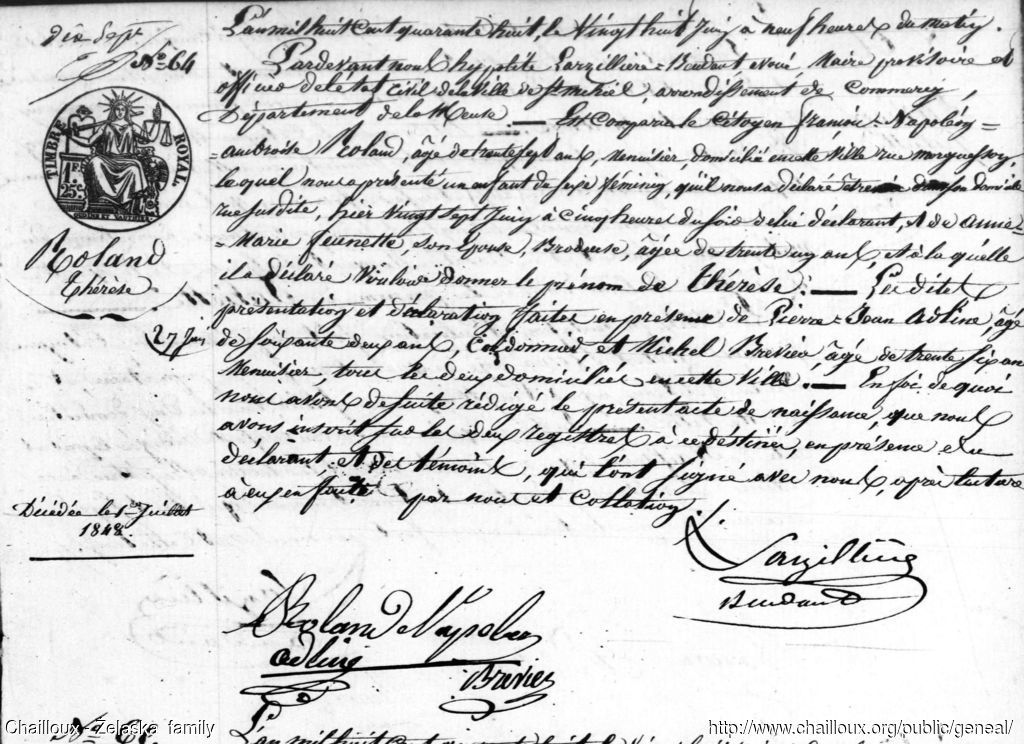 dix Sept
No. 64
TIMBRE ROYAL
1F. 25c.
Roland
Thérèse
27 Juin
Décédée le 1er Juillet
1848
L'an mil huit cent quarante huit, le Vingt huit Juin à neuf heures du matin.
Pardevant nous hypolite Larzillière = Beudant avoué Maire provisoire et
officier de l'état civil de la Ville de St. Mihiel, arrondissement de Commercy,
Département de la Meuse. — Est comparu le Citoyen françois = Napoléon =
= ambroise Roland, âgé de trente sept ans, Menuisier, domicilié en cette Ville rue
lequel nous a présenté un enfant de sexe féminin, qu'il nous a déclaré être née dans son domicile
rue susdite, hier Vingt sept Juin à cinq heures du soir de lui déclarant, et de anne =
= Marie Jeunette son Epouse, Brodeuse, âgée de trente un ans, et à laquelle
il a déclaré Vouloir donner le prénom de Thérèse. — Lesdites
présentation et déclaration faites en présence de Pierre = Jean Adline, âgé
de soixante deux ans, Cordonnier, et Michel Brévier, âgé de trente six ans
Menuisier, tous les deux domiciliés en cette Ville. — En foi de quoi
nous avons de suite rédigé le présent acte de naissance, que nous
avons inscrit sur les deux registres à ce destinés, en présence du
déclarant et des témoins, qui l'ont signé avec nous, après lecture
à eux en faite par nous et Collation
L. Larzillière
Beudant
Roland Napoléon
adline
Brévier
No. 65.
L'an mil huit cent quarante huit le
Chailloux-Zelaska family
http://www.chailloux.org/public/geneal/